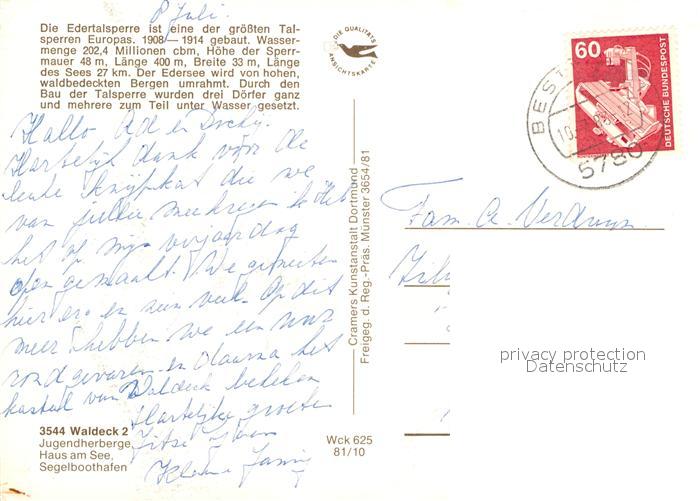 8 Juli.
Die Edertalsperre ist eine der größten Tal-
sperren Europas. 1908—1914 gebaut. Wasser-
menge 202,4 Millionen cbm, Höhe der Sperr-
mauer 48 m, Länge 400 m, Breite 33 m, Länge
des Sees 27 km. Der Edersee wird von hohen,
waldbedeckten Bergen umrahmt. Durch den
Bau der Talsperre wurden drei Dörfer ganz
und mehrere zum Teil unter Wasser gesetzt.
Hallo Ad en
Hartelijk dank voor de
leuke die we
van jullie meekregen
het op mijn verjaardag
open gemaakt. We genieten
hier erg en veel. Op dit
meer hebben we een uur
rond gevaren en daarna het
kasteel van Waldeck bekeken
Hartelijke groeten
3544 Waldeck 2
Jugendherberge,
Haus am See,
Segelboothafen
Wck 625
81/10
Cramers Kunstanstalt Dortmund
Freigeg. d. Reg.-Präs. Münster 3664/81
DIE QUALITÄTS
ANSICHTSKARTE
60
DEUTSCHE BUNDESPOST
BEST
5780
Fam. A. Verduyn
privacy protection
Datenschutz